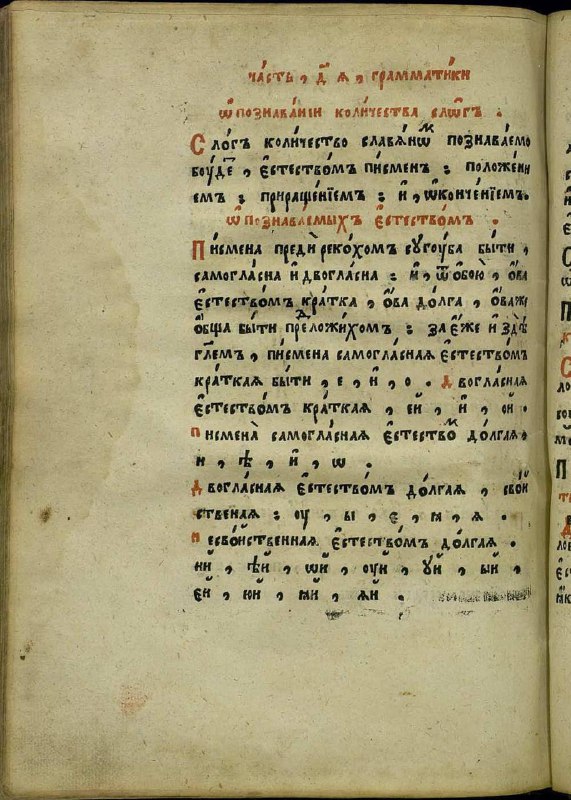 ча́сть , д҃ ѧ , грамма́тіки
ѿ познава́нїи коли́чества сло́гъ .
Сло́гъ коли́чество славѧ́нѡⷨ познава́емо
боу́детⸯ , є҆стество́мъ пи́сменъ : положе́нїи
емъ : прираще́нїемъ : и҆ , ѡ҆конче́нїемъ .
ѿ познава́емыхъ є҆стество́мъ .
Пи́смена преди́ реко́хомъ сꙋгꙋ́ба бы́ти ,
самогла́сна и҆ двогла́сна : и҆ , ѿ ѻ҆бою̀ , ѻ҆́ва
є҆стество́мъ кра́тка , ѻ҆́ва до́лга , ѻ҆́ва же
ѻ҆́бща бы́ти преⷣложи́хомъ : за є҆́же и҆ здѣ̀
гл҃емъ , пи́смена самогла́сная є҆стество́мъ
кра́ткая бы́ти , е , и҆ , о . двогла́сная
є҆стество́мъ кра́ткая , ей , и҆й , ой .
писмена̀ самогла́сная є҆стество́ⷨ до́лгая .
и , ѣ , и҆ , ѡ .
двогла́сная є҆стество́мъ до́лгая , свой
ственая : оу , ы , є , ꙗ , ѧ .
несво́йственная є҆стество́мъ до́лгая .
ий , ѣй , ѡй , оуй , ꙋй , ый ,
єй , юй , ꙗй , ѧй .